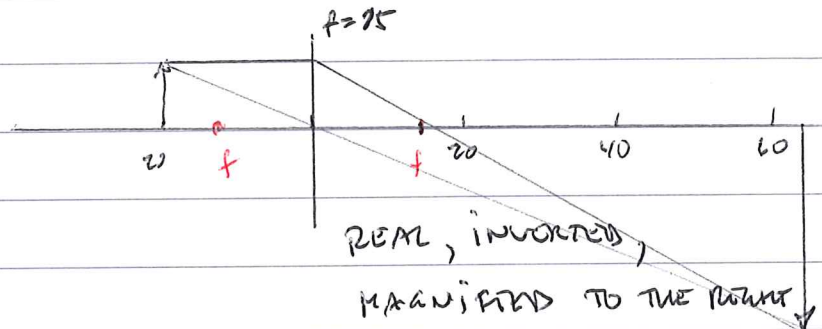 f=15
20 20 40 60
f f
REAL, INVERTED,
MAGNIFIED TO THE RIGHT